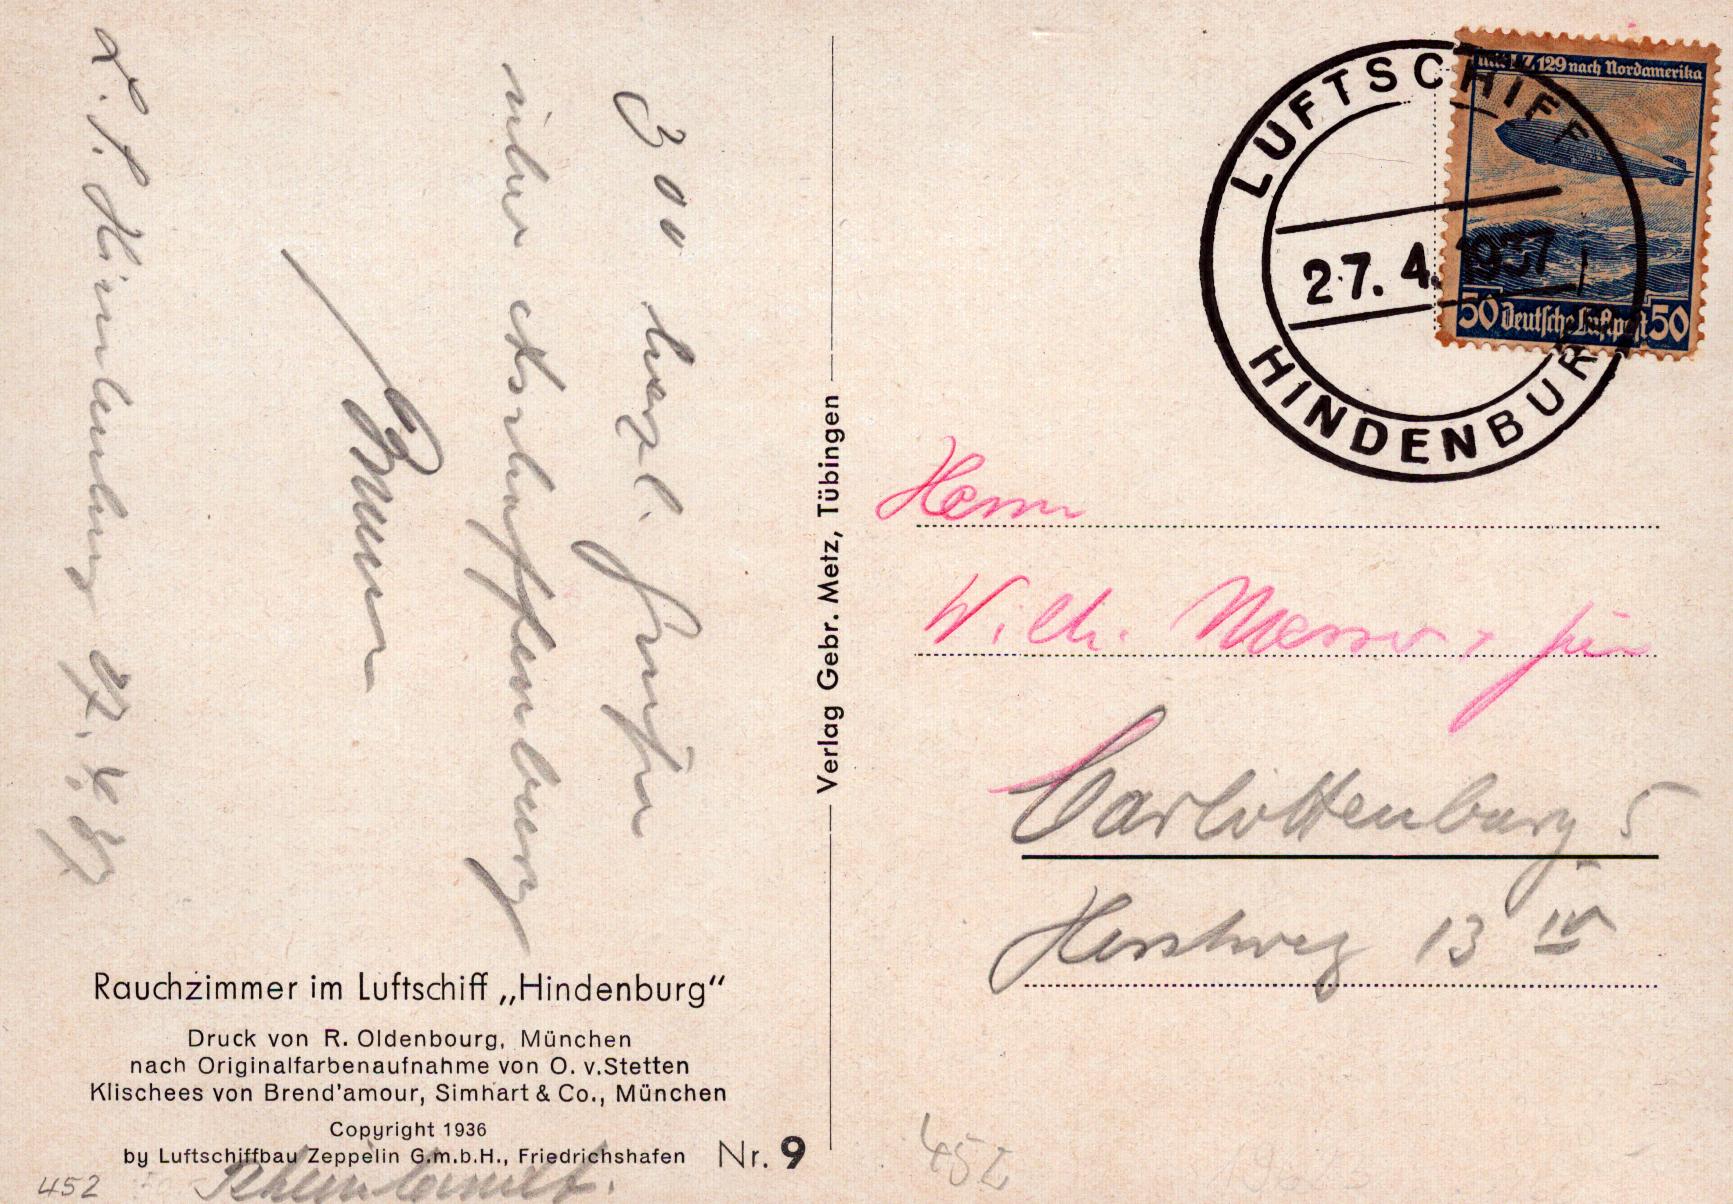 L. S. Hindenburg 27. 4. 37.
300 herzl. Grüße
Verlag Gebr. Metz, Tübingen
LUFTSCHIFF
27. 4. 1937
HINDENBURG
mit LZ 129 nach Nordamerika
50 Deutsche Luftpost 50
Herrn
Wilh.
Carlottenburg 5
Horstweg 13 IV
Rauchzimmer im Luftschiff „Hindenburg“
Druck von R. Oldenbourg, München
nach Originalfarbenaufnahme von O. v. Stetten
Klischees von Brend'amour, Simhart & Co., München
Copyright 1936
by Luftschiffbau Zeppelin G.m.b.H., Friedrichshafen
Nr. 9
452
452